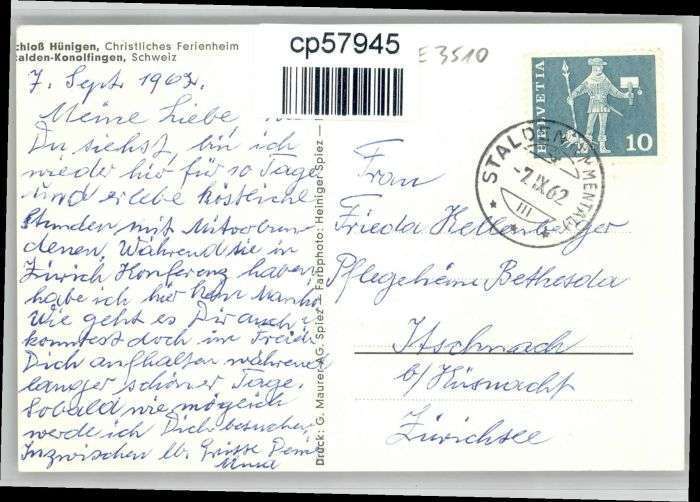 cp57945
E 3510
chloß Hünigen, Christliches Ferienheim
talden-Konolfingen, Schweiz
7. Sept. 1962.
Meine Liebe
Du siehst, bin ich
wieder hier für 10 Tage
und erlebe köstliche
Stunden mit Mitverbun-
denen. Während sie in
Zürich Konferenz haben,
habe ich hier kein Manko
Wie geht es Dir auch
konntest doch im Freien
Dich aufhalten während
langer schöner Tage.
Sobald wie möglich
werde ich Dich besuchen,
Inzwischen lb. Grüsse Deine
Druck: G. Maurer AG. Spiez – Farbphoto: Heiniger Spiez –
HELVETIA
10
STALDEN
-7.IX.62
III
Frau
Frieda Kellenberger
Pflegeheim Bethesda
Itschnach
b/ Küsnacht
Zürichsee